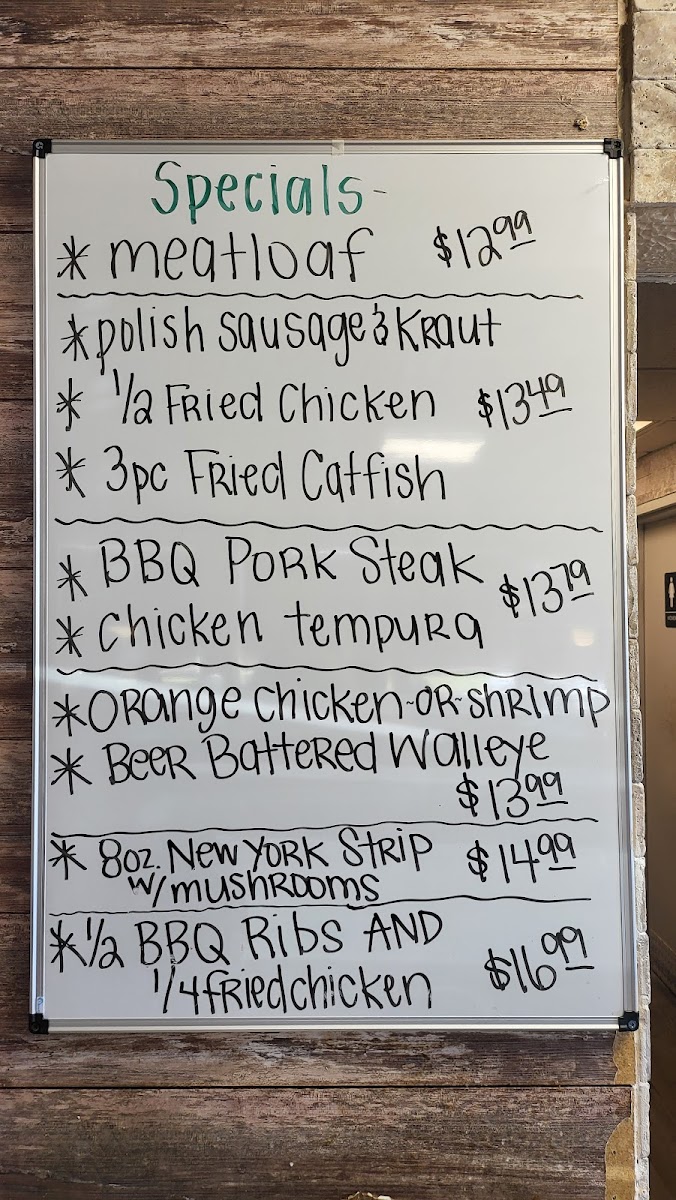 Specials-
* meatloaf $12.99
* polish sausage & Kraut
* 1/2 Fried Chicken $13.49
* 3pc Fried Catfish
* BBQ Pork Steak
* Chicken tempura $13.79
* Orange Chicken-OR-Shrimp
* Beer Battered Walleye
$13.99
* 8oz. New York Strip $14.99
w/ mushrooms
* 1/2 BBQ Ribs AND
1/4 fried chicken $16.99